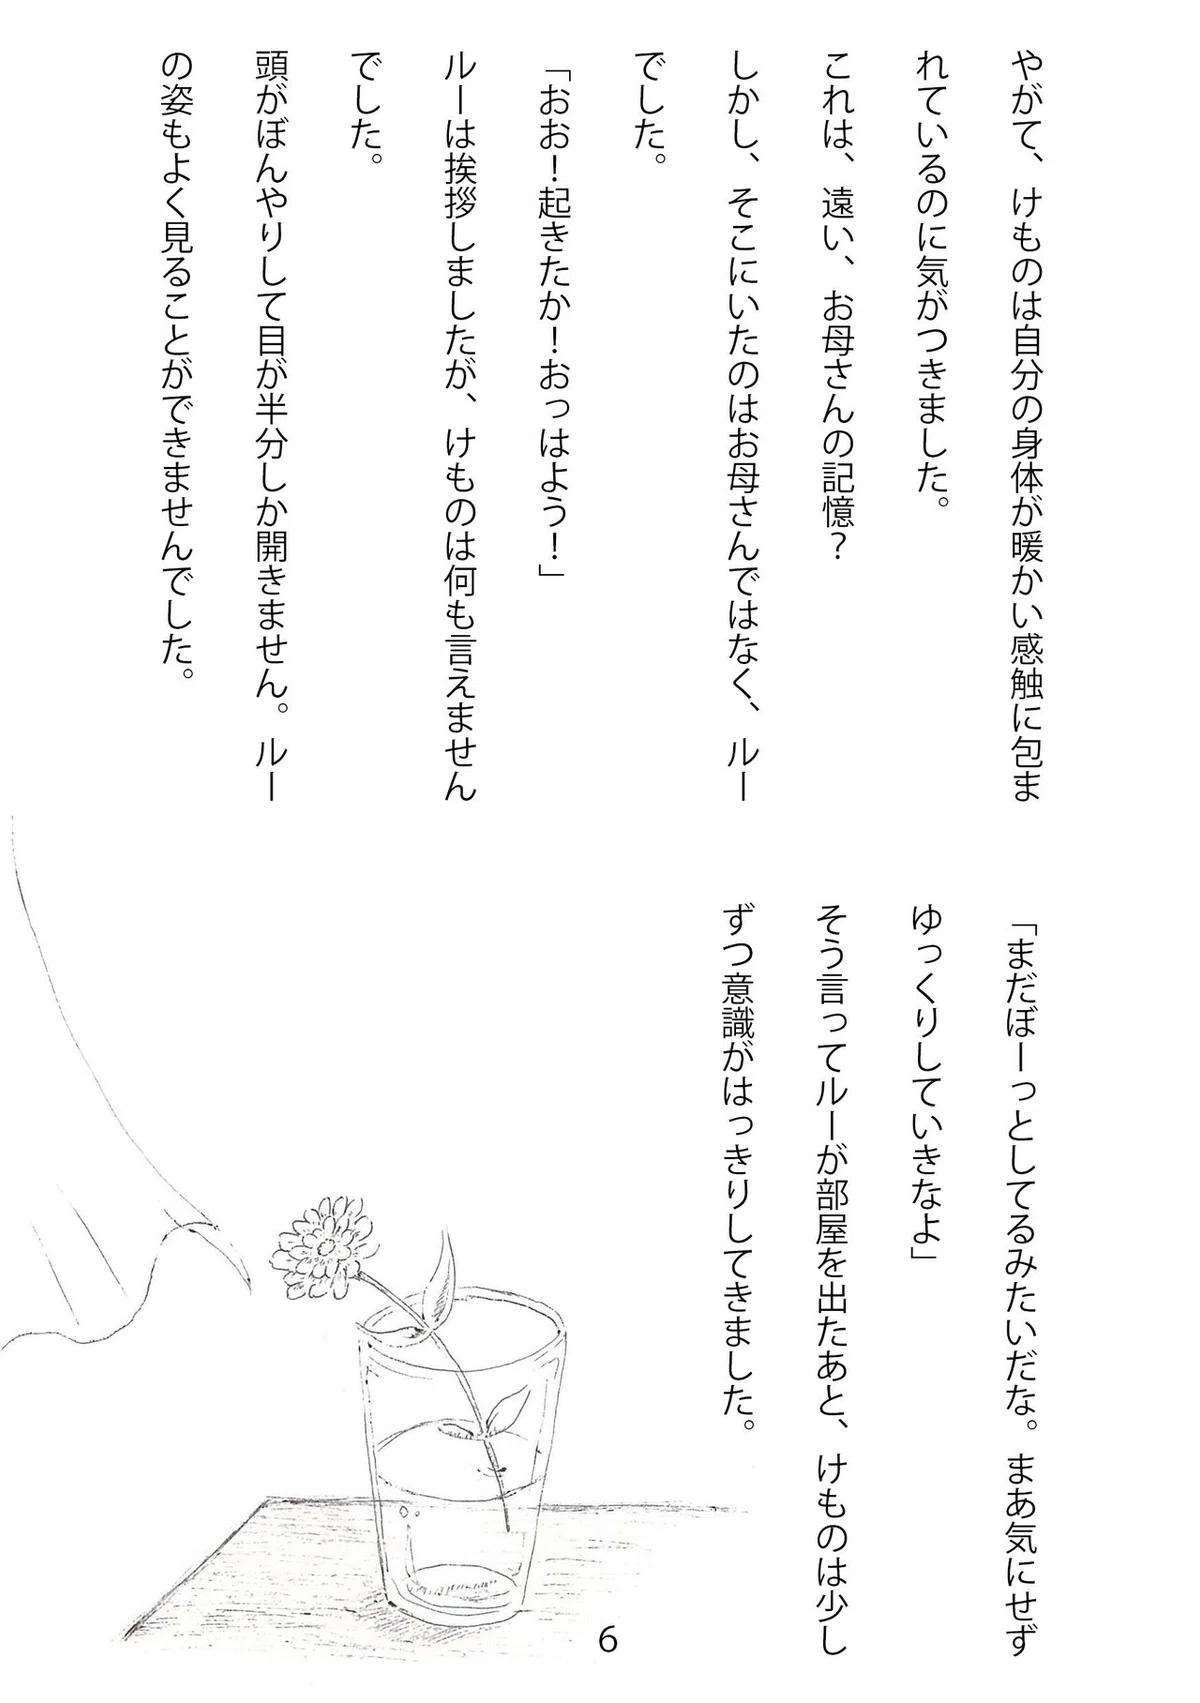 やがて、けものは自分の身体が暖かい感触に包ま
れているのに気がつきました。
これは、遠い、お母さんの記憶？
しかし、そこにいたのはお母さんではなく、ルー
でした。
「おお！起きたか！おっはよう！」
ルーは挨拶しましたが、けものは何も言えません
でした。
頭がぼんやりして目が半分しか開きません。ルー
の姿もよく見ることができませんでした。
「まだぼーっとしてるみたいだな。まあ気にせず
ゆっくりしていきなよ」
そう言ってルーが部屋を出たあと、けものは少し
ずつ意識がはっきりしてきました。
6